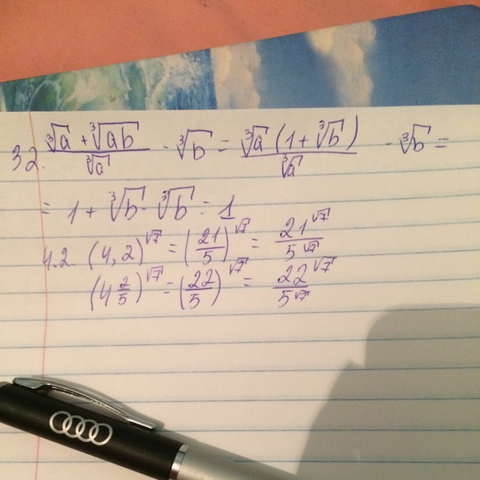 32. (∛a + ∛ab)/∛a - ∛b = ∛a (1 + ∛b)/∛a - ∛b =
= 1 + ∛b - ∛b = 1
4.2. (4,2)^√7 = (21/5)^√7 = 21^√7/5^√7
(4 2/5)^√7 = (22/5)^√7 = 22^√7/5^√7